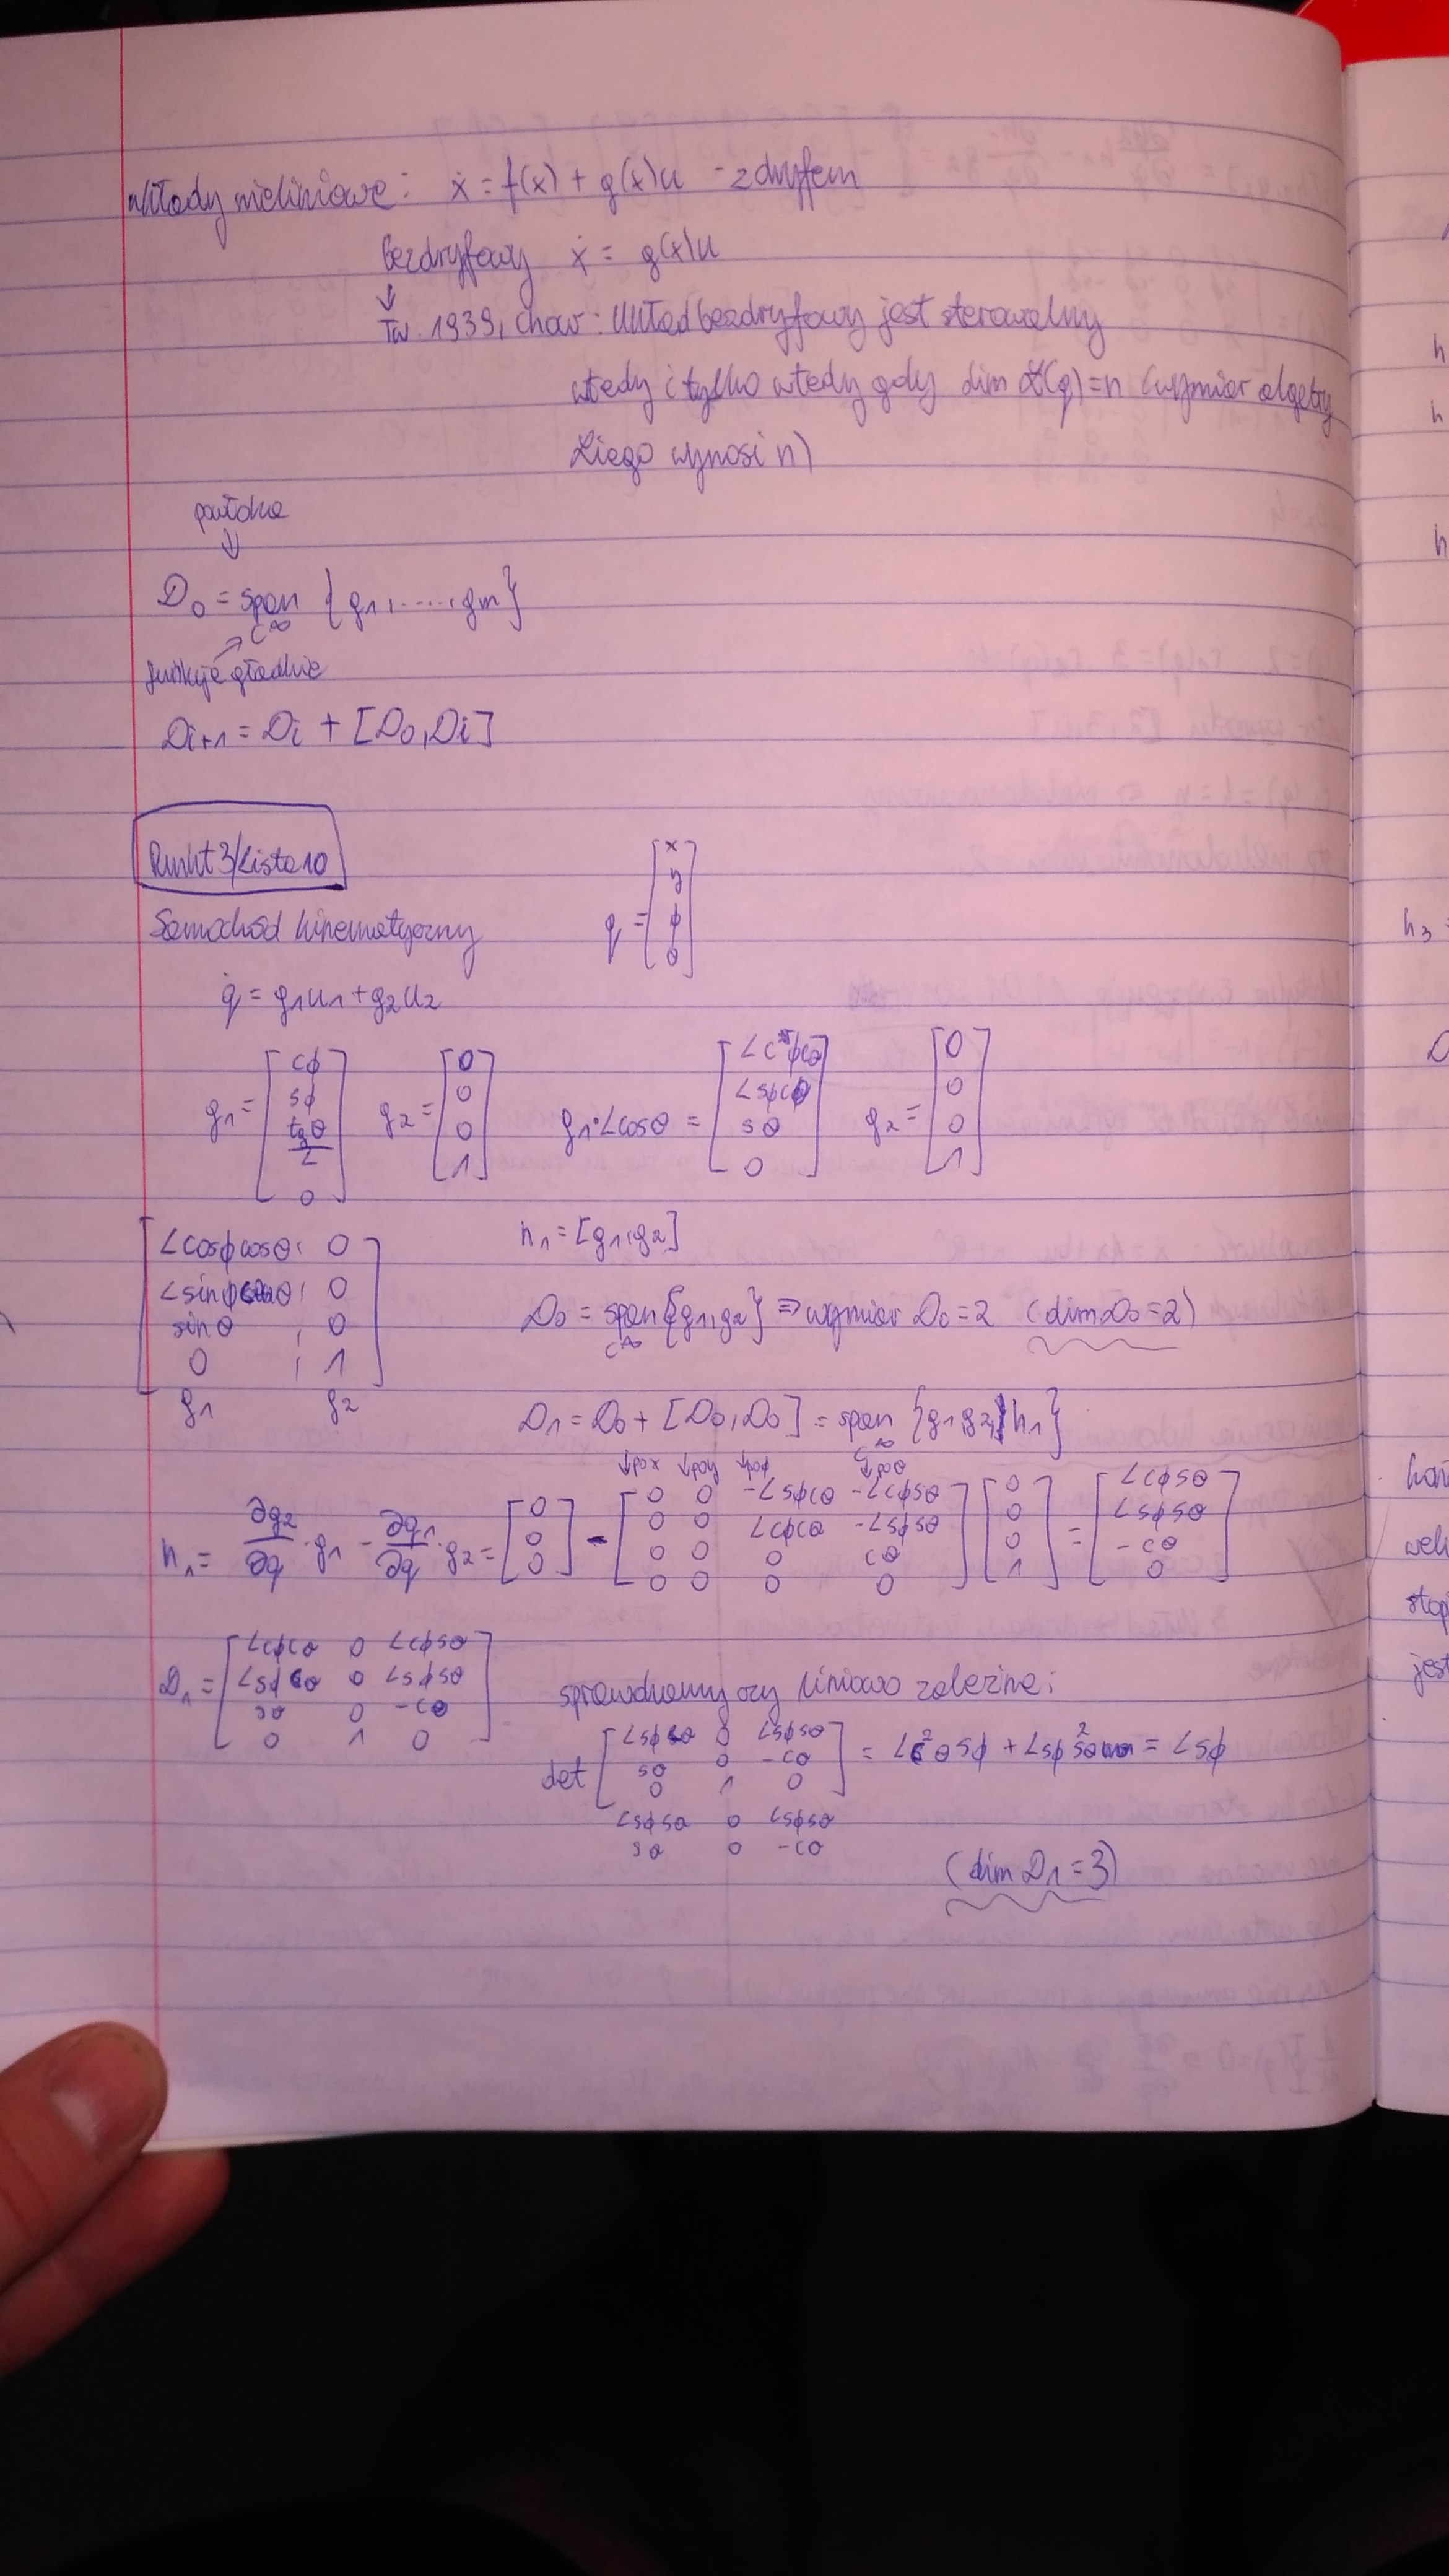 układy nieliniowe: ẋ = f(x) + g(x)u - z dryfem
bezdryfowy ẋ = g(x)u
↓
Tw. 1939, Chow: Układ bezdryfowy jest sterowalny
wtedy i tylko wtedy gdy dim ℒ(g) = n (wymiar algebry
Liego wynosi n)
powłoka
↓
D₀ = span {g₁, ....., gm}
C∞
funkcje gładkie
Di+1 = Di + [D₀, Di]
Punkt 3/Lista 10
Samochód kinematyczny q = [x y φ θ]
q̇ = g₁u₁ + g₂u₂
g₁ = [cφ sφ tgθ/L 0] g₂ = [0 0 0 1] g₁·Lcosθ = [Lcφcθ Lsφcθ sθ 0] g₂ = [0 0 0 1]
[Lcosφcosθ, 0
Lsinφcosθ, 0
sinθ, 0
0, 1]
g₁ g₂
h₁ = [g₁, g₂]
D₀ = span {g₁, g₂} ⇒ wymiar D₀ = 2 (dim D₀ = 2)
C∞
D₁ = D₀ + [D₀, D₀] = span {g₁, g₂, h₁}
C∞
↓po x ↓po y ↓po φ ↓po θ
h₁ = ∂g₂/∂q · g₁ - ∂g₁/∂q · g₂ = [0 0 0] - [0 0 -Lsφcθ -Lcφsθ
0 0 Lcφcθ -Lsφsθ
0 0 0 cθ
0 0 0 0] [0 0 0 1] = [Lcφsθ Lsφsθ -cθ 0]
D₁ = [Lcφcθ 0 Lcφsθ
Lsφcθ 0 Lsφsθ
sθ 0 -cθ
0 1 0]
sprawdzamy czy liniowo zależne:
det [Lsφcθ 0 Lsφsθ
sθ 0 -cθ
0 1 0] = Lc²θsφ + Lsφs²θ = Lsφ
Lsφsθ 0 Lsφsθ
sθ 0 -cθ
(dim D₁ = 3)
h
h
h
h₃ =
D
weh
stop
jest